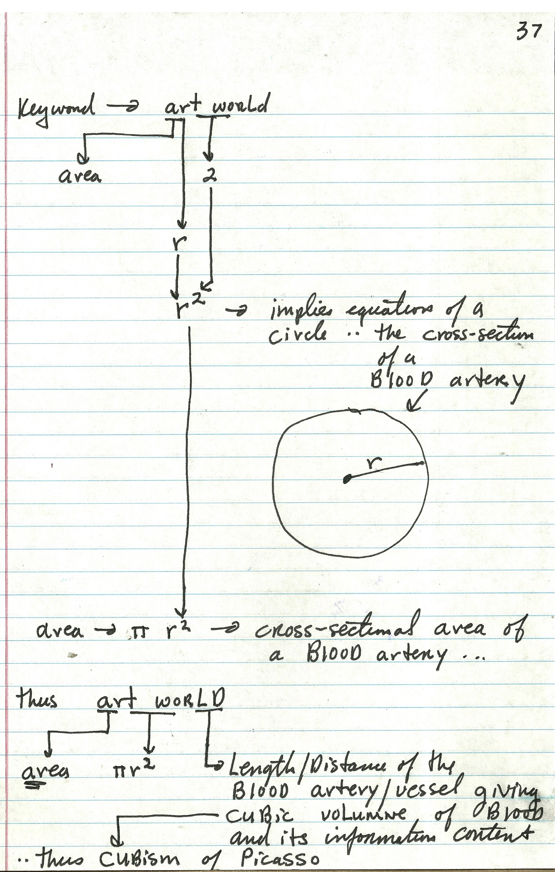 37
Keyword → art world
area 2
r
r² → implies equation of a
circle .. the cross-section
of a
BlOOD artery
r
area → π r² → cross-sectional area of
a BlOOD artery ...
thus art worLD
area πr² Length/Distance of the
BlOOD artery/vessel giving
CUBic volumne of BlOOD
and its information content
.. thus CUBism of Picasso